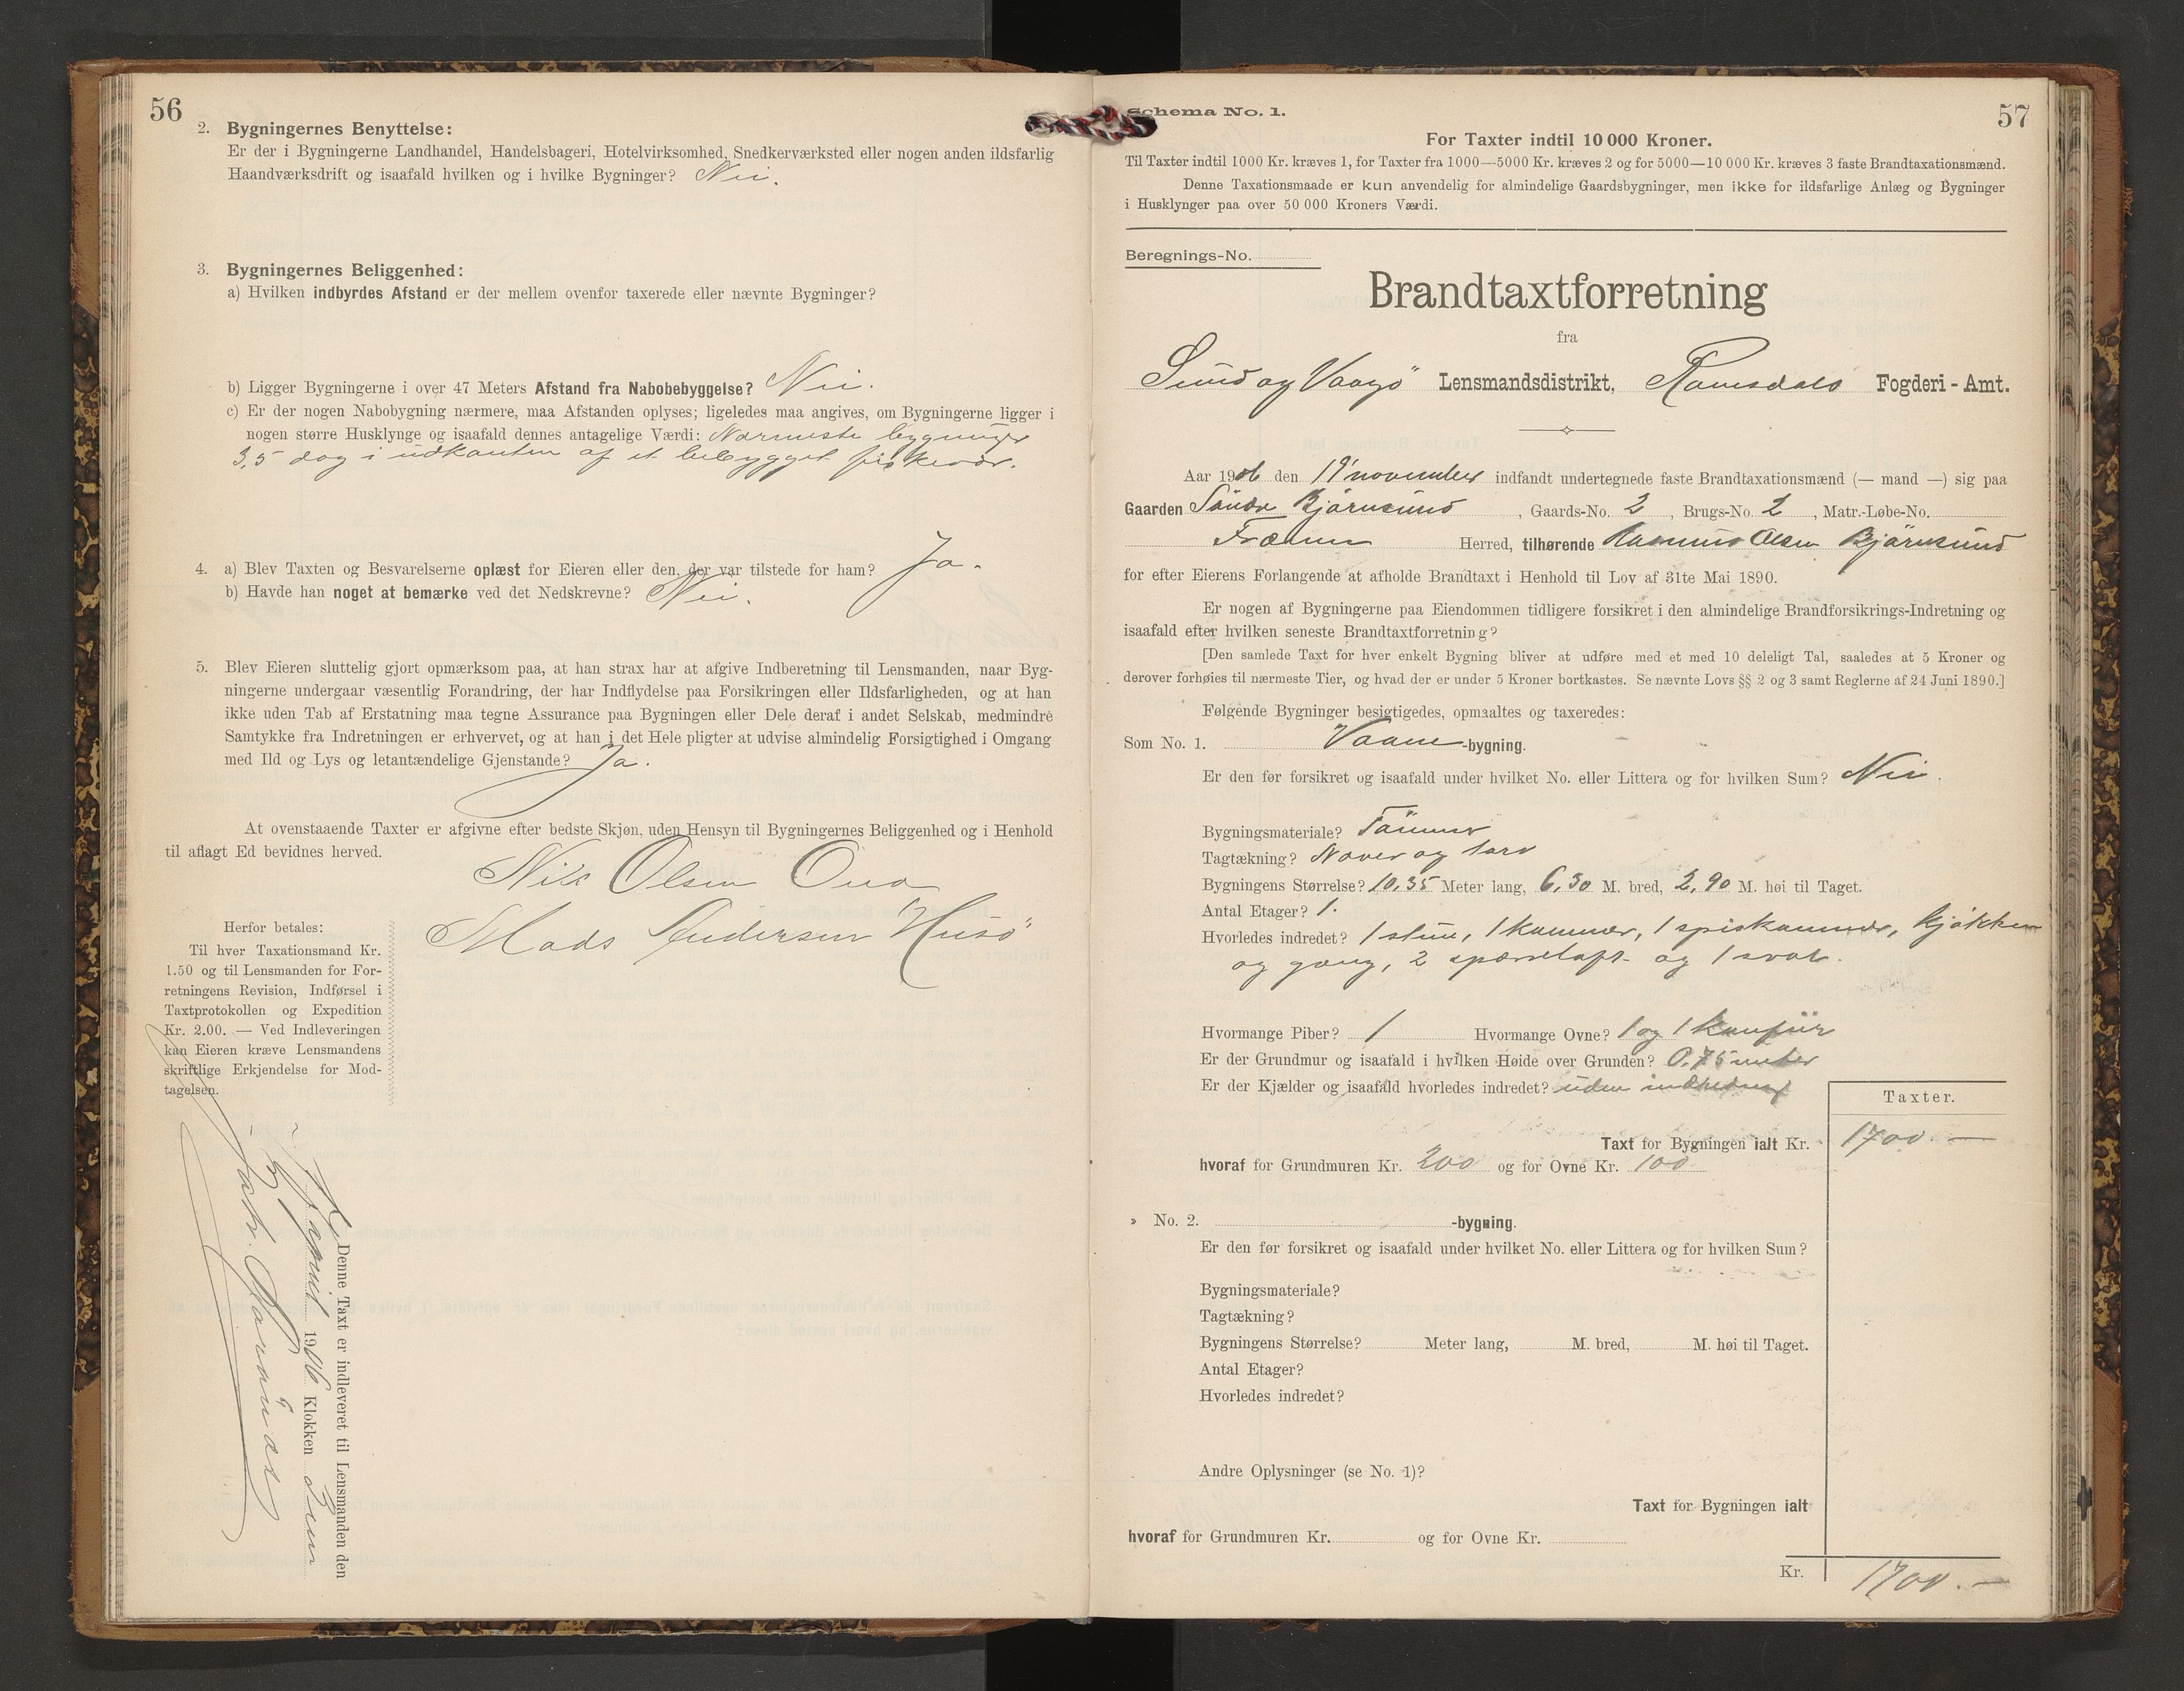 56
2. Bygningernes Benyttelse:
Er der i Bygningerne Landhandel, Handelsbageri, Hotelvirksomhed, Snedkerværksted eller nogen anden ildsfarlig
Haandværksdrift og isaafald hvilken og i hvilke Bygninger? Nei.
3. Bygningernes Beliggenhed:
a) Hvilken indbyrdes Afstand er der mellem ovenfor taxerede eller nævnte Bygninger?
b) Ligger Bygningerne i over 47 Meters Afstand fra Nabobebyggelse? Nei.
c) Er der nogen Nabobygning nærmere, maa Afstanden oplyses; ligeledes maa angives, om Bygningerne ligger i
nogen større Husklynge og isaafald dennes antagelige Værdi: Nærmeste bygninger
3,5 dog i udkanten af et bebygget fiskevær.
4. a) Blev Taxten og Besvarelserne oplæst for Eieren eller den, der var tilstede for ham? Ja.
b) Havde han noget at bemærke ved det Nedskrevne? Nei.
5. Blev Eieren sluttelig gjort opmærksom paa, at han strax har at afgive Indberetning til Lensmanden, naar Byg-
ningerne undergaar væsentlig Forandring, der har Indflydelse paa Forsikringen eller Ildsfarligheden, og at han
ikke uden Tab af Erstatning maa tegne Assurance paa Bygningen eller Dele deraf i andet Selskab, medmindre
Samtykke fra Indretningen er erhvervet, og at han i det Hele pligter at udvise almindelig Forsigtighed i Omgang
med Ild og Lys og letantændelige Gjenstande? Ja.
At ovenstaaende Taxter er afgivne efter bedste Skjøn, uden Hensyn til Bygningernes Beliggenhed og i Henhold
til aflagt Ed bevidnes herved.
Nils Olsen Ona
Mads Andersen Husö
Herfor betales:
Til hver Taxationsmand Kr.
1.50 og til Lensmanden for For-
retningens Revision, Indførsel i
Taxtprotokollen og Expedition
Kr. 2.00. — Ved Indleveringen
kan Eieren kræve Lensmandens
skriftlige Erkjendelse for Mod-
tagelsen.
Denne Taxt er indleveret til Lensmanden den
1906 Klokken
57
Schema No. 1.
For Taxter indtil 10 000 Kroner.
Til Taxter indtil 1000 Kr. kræves 1, for Taxter fra 1000—5000 Kr. kræves 2 og for 5000—10 000 Kr. kræves 3 faste Brandtaxationsmænd.
Denne Taxationsmaade er kun anvendelig for almindelige Gaardsbygninger, men ikke for ildsfarlige Anlæg og Bygninger
i Husklynger paa over 50 000 Kroners Værdi.
Beregnings-No.
Brandtaxtforretning
fra
Sund og Vaagö Lensmandsdistrikt, Romsdals Fogderi - Amt.
Aar 1906 den 19 november indfandt undertegnede faste Brandtaxationsmænd (— mand —) sig paa
Gaarden Söndr Björnsund, Gaards-No. 2, Brugs-No. 2, Matr.-Løbe-No.
Fræna Herred, tilhørende Rasmus Olsen Björnsund
for efter Eierens Forlangende at afholde Brandtaxt i Henhold til Lov af 31te Mai 1890.
Er nogen af Bygningerne paa Eiendommen tidligere forsikret i den almindelige Brandforsikrings-Indretning og
isaafald efter hvilken seneste Brandtaxtforretning?
[Den samlede Taxt for hver enkelt Bygning bliver at udføre med et med 10 deleligt Tal, saaledes at 5 Kroner og
derover forhøies til nærmeste Tier, og hvad der er under 5 Kroner bortkastes. Se nævnte Lovs §§ 2 og 3 samt Reglerne af 24 Juni 1890.]
Følgende Bygninger besigtigedes, opmaaltes og taxeredes:
Som No. 1. Vaane-bygning.
Er den før forsikret og isaafald under hvilket No. eller Littera og for hvilken Sum? Nei.
Bygningsmateriale? Tömmer
Tagtækning? Nover og torv
Bygningens Størrelse? 10,35 Meter lang, 6,30 M. bred, 2,90 M. høi til Taget.
Antal Etager? 1.
Hvorledes indredet? 1 stue, 1 kammer, 1 spiskammer, kjökken
og gang, 2 og 1 sval.
Hvormange Piber? 1 Hvormange Ovne? 1 og 1 komfür
Er der Grundmur og isaafald i hvilken Høide over Grunden? 0,75 meter
Er der Kjælder og isaafald hvorledes indredet? uden indredning
Taxter.
Taxt for Bygningen ialt Kr. 1700.—
hvoraf for Grundmuren Kr. 200 og for Ovne Kr. 100
» No. 2. -bygning.
Er den før forsikret og isaafald under hvilket No. eller Littera og for hvilken Sum?
Bygningsmateriale?
Tagtækning?
Bygningens Størrelse? Meter lang, M. bred, M. høi til Taget.
Antal Etager?
Hvorledes indredet?
Andre Oplysninger (se No. 1)?
Taxt for Bygningen ialt
hvoraf for Grundmuren Kr. og for Ovne Kr.
Kr. 1700.—